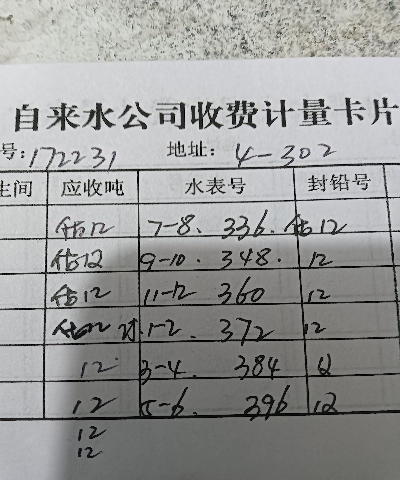 自来水公司收费计量卡片
号:172231 地址: 4-302
生间 应收吨 水表号 封铅号
估12 7-8. 336. 估12
估12 9-10. 348. 12
估12 11-12 360 12
估12 1-2. 372 12
12 3-4. 384 12
12 5-6. 396 12
12
12